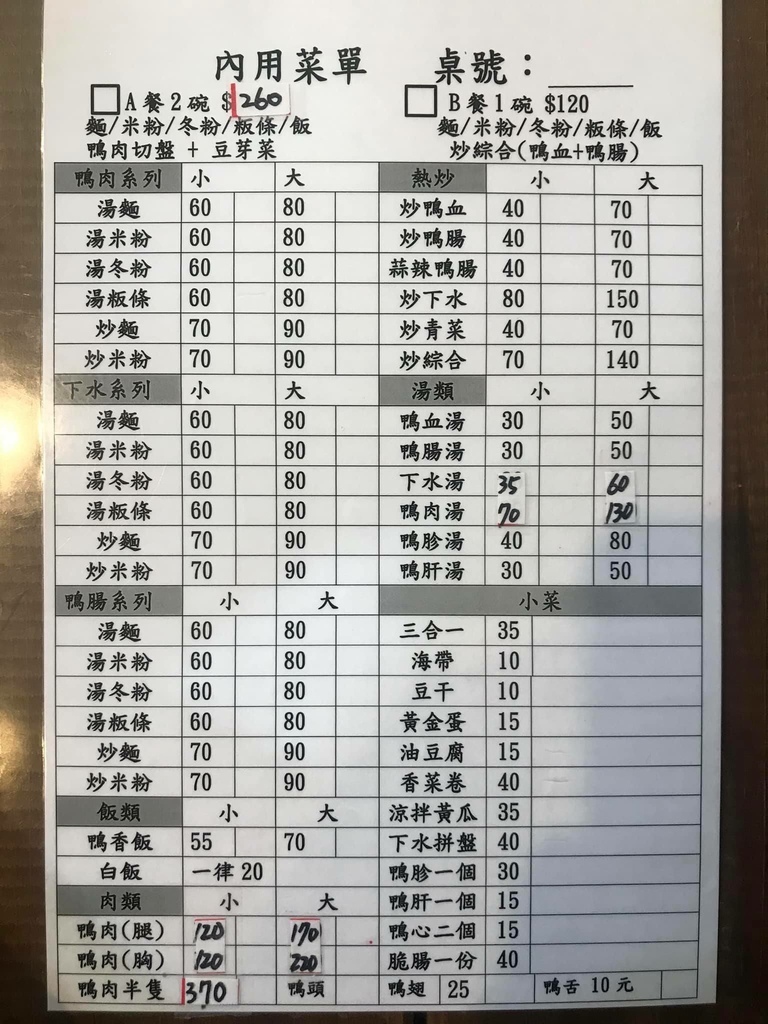 內用菜單 桌號：
A餐2碗 $260 B餐1碗 $120
麵/米粉/冬粉/粄條/飯 麵/米粉/冬粉/粄條/飯
鴨肉切盤 + 豆芽菜 炒綜合(鴨血+鴨腸)
鴨肉系列 小 大 熱炒 小 大
湯麵 60 80 炒鴨血 40 70
湯米粉 60 80 炒鴨腸 40 70
湯冬粉 60 80 蒜辣鴨腸 40 70
湯粄條 60 80 炒下水 80 150
炒麵 70 90 炒青菜 40 70
炒米粉 70 90 炒綜合 70 140
下水系列 小 大 湯類 小 大
湯麵 60 80 鴨血湯 30 50
湯米粉 60 80 鴨腸湯 30 50
湯冬粉 60 80 下水湯 35 60
湯粄條 60 80 鴨肉湯 70 130
炒麵 70 90 鴨胗湯 40 80
炒米粉 70 90 鴨肝湯 30 50
鴨腸系列 小 大 小菜
湯麵 60 80 三合一 35
湯米粉 60 80 海帶 10
湯冬粉 60 80 豆干 10
湯粄條 60 80 黃金蛋 15
炒麵 70 90 油豆腐 15
炒米粉 70 90 香菜卷 40
飯類 小 大 涼拌黃瓜 35
鴨香飯 55 70 下水拼盤 40
白飯 一律20 鴨胗一個 30
肉類 小 大 鴨肝一個 15
鴨肉(腿) 120 170 鴨心二個 15
鴨肉(胸) 120 220 脆腸一份 40
鴨肉半隻 370 鴨頭 鴨翅 25 鴨舌 10元